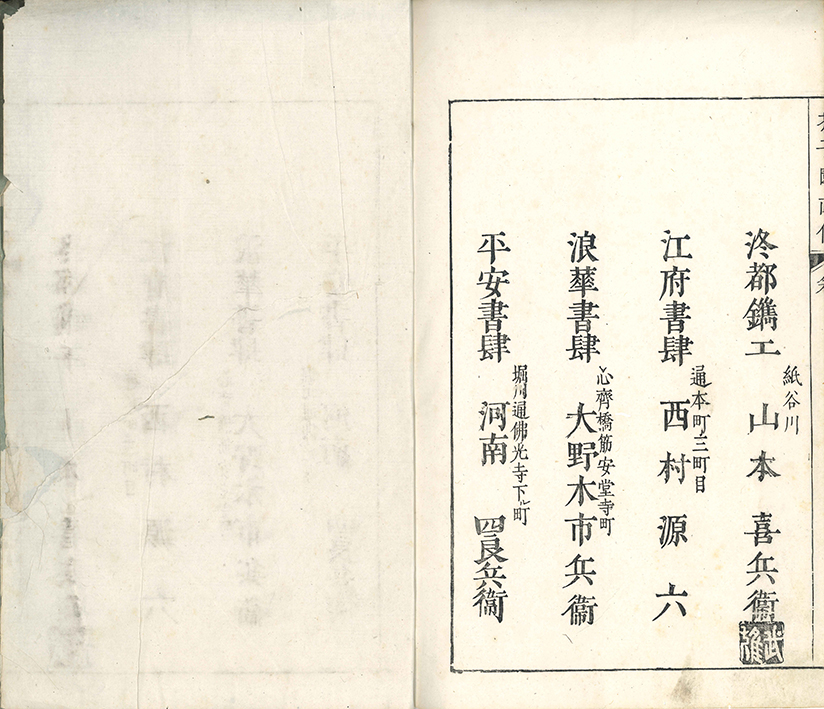 洛都鐫工
紙谷川
山本喜兵衞
江府書肆
通本町三町目
西村源六
浪華書肆
心齊橋筋安堂寺町
大野木市兵衞
平安書肆
堀川通佛光寺下ル町
河南四良兵衞